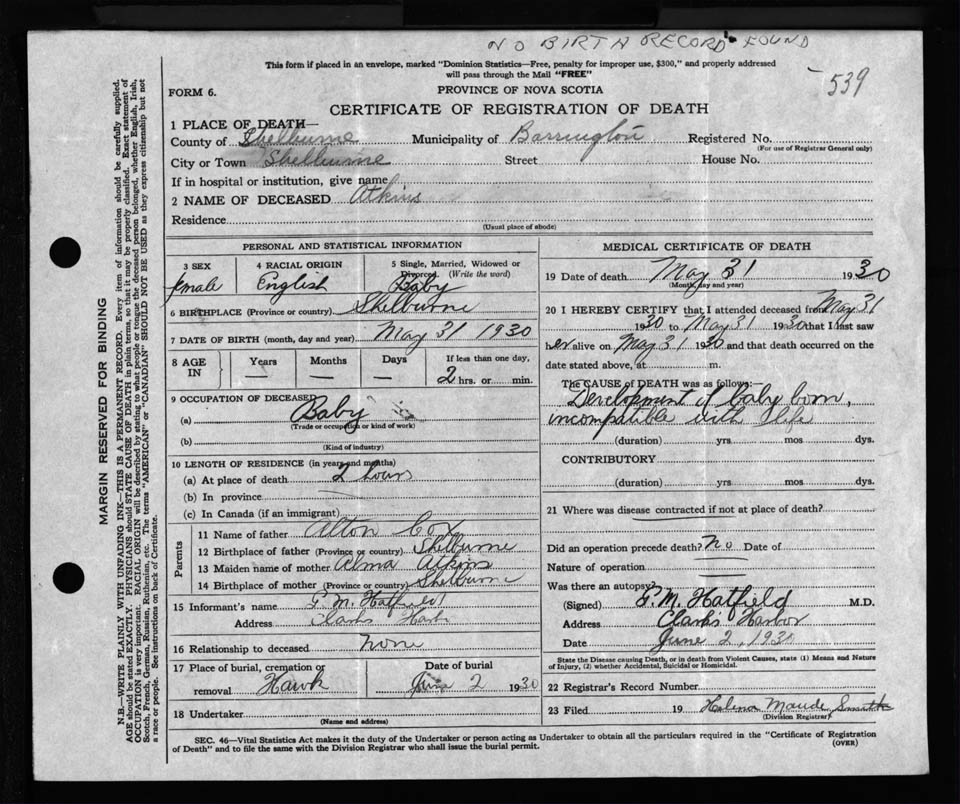 NO BIRTH RECORD FOUND
This form if placed in an envelope, marked "Dominion Statistics—Free, penalty for improper use, $300," and properly addressed
will pass through the Mail "FREE"
539
FORM 6.
PROVINCE OF NOVA SCOTIA
CERTIFICATE OF REGISTRATION OF DEATH
1 PLACE OF DEATH—
County of Shelburne Municipality of Barrington Registered No.
(For use of Registrar General only)
City or Town Shelburne Street House No.
If in hospital or institution, give name
2 NAME OF DECEASED Atkins
Residence
(Usual place of abode)
PERSONAL AND STATISTICAL INFORMATION
3 SEX 4 RACIAL ORIGIN 5 Single, Married, Widowed or
Divorced (Write the word)
female English Baby
6 BIRTHPLACE (Province or country) Shelburne
7 DATE OF BIRTH (month, day and year) May 31 1930
8 AGE IN Years Months Days If less than one day,
— — — 2 hrs. or min.
9 OCCUPATION OF DECEASED
(a) Baby
(Trade or occupation or kind of work)
(b)
(Kind of industry)
10 LENGTH OF RESIDENCE (in years and months)
(a) At place of death 2 hours
(b) In province
(c) In Canada (if an immigrant)
Parents
11 Name of father Alton Cox
12 Birthplace of father (Province or country) Shelburne
13 Maiden name of mother Alma Atkins
14 Birthplace of mother (Province or country) Shelburne
15 Informant's name P.M. Hatfield
Address Clarks Harbor
16 Relationship to deceased none
17 Place of burial, cremation or
removal Hawk
Date of burial
June 2 1930
18 Undertaker
(Name and address)
MEDICAL CERTIFICATE OF DEATH
19 Date of death May 31 1930
(Month, day and year)
20 I HEREBY CERTIFY that I attended deceased from May 31
1930 to May 31 1930 that I last saw
her alive on May 31 1930 and that death occurred on the
date stated above, at m.
The CAUSE OF DEATH was as follows:
Development of baby born,
incompatible with life
(duration) yrs mos dys.
CONTRIBUTORY
(duration) yrs mos dys.
21 Where was disease contracted if not at place of death?
Did an operation precede death? No Date of
Nature of operation
Was there an autopsy?
(Signed) P.M. Hatfield M.D.
Address Clark's Harbor
Date June 2, 1930
State the Disease causing Death, or in death from Violent Causes, state (1) Means and Nature
of Injury, (2) whether Accidental, Suicidal or Homicidal.
22 Registrar's Record Number
23 Filed 19 Helena Maude Smith
(Division Registrar)
SEC. 46—Vital Statistics Act makes it the duty of the Undertaker or person acting as Undertaker to obtain all the particulars required in the "Certificate of Registration
of Death" and to file the same with the Division Registrar who shall issue the burial permit.
(OVER)
MARGIN RESERVED FOR BINDING
N.B.—WRITE PLAINLY WITH UNFADING INK—THIS IS A PERMANENT RECORD. Every item of information should be carefully supplied.
AGE should be stated EXACTLY. PHYSICIANS should STATE CAUSE OF DEATH in plain terms, so that it may be properly classified. Exact statement of
OCCUPATION is very important. RACIAL ORIGIN will be described by stating to what people or tongue the deceased person belonged, whether English, Irish,
Scotch, French, German, Russian, Ruthenian, etc. The terms "AMERICAN" or "CANADIAN" SHOULD NOT BE USED as they express citizenship but not
a race or people. See instructions on back of Certificate.